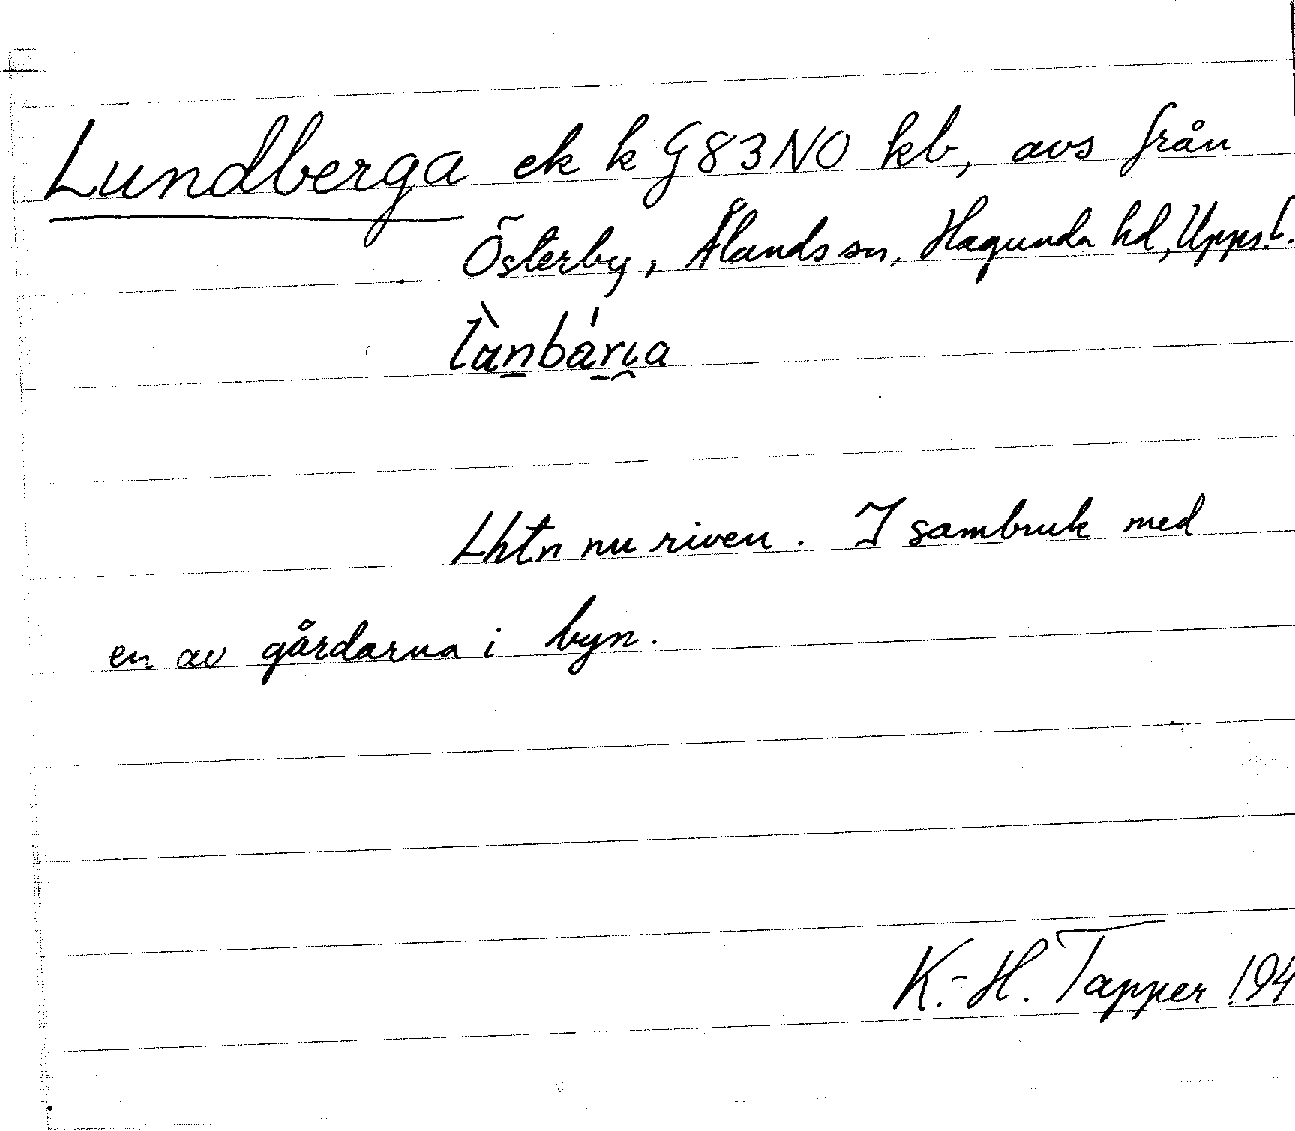 Lundberga ek k G83NO kb, avs från
Österby, Ålands sn, Hagunda hd, Upps.l.
Lhtn nu riven. I sambruk med
en av gårdarna i byn.
K.-H. Tapper 194